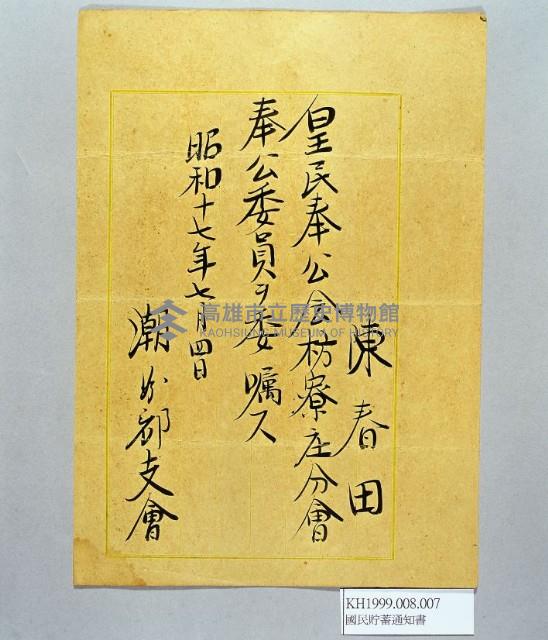 陳春田
皇民奉公会枋寮庄分會
奉公委員ヲ委嘱ス
昭和十七年七月四日
潮州郡支會
高雄市立歷史博物館
KAOHSIUNG MUSEUM OF HISTORY
KH1999.008.007
國民貯蓄通知書